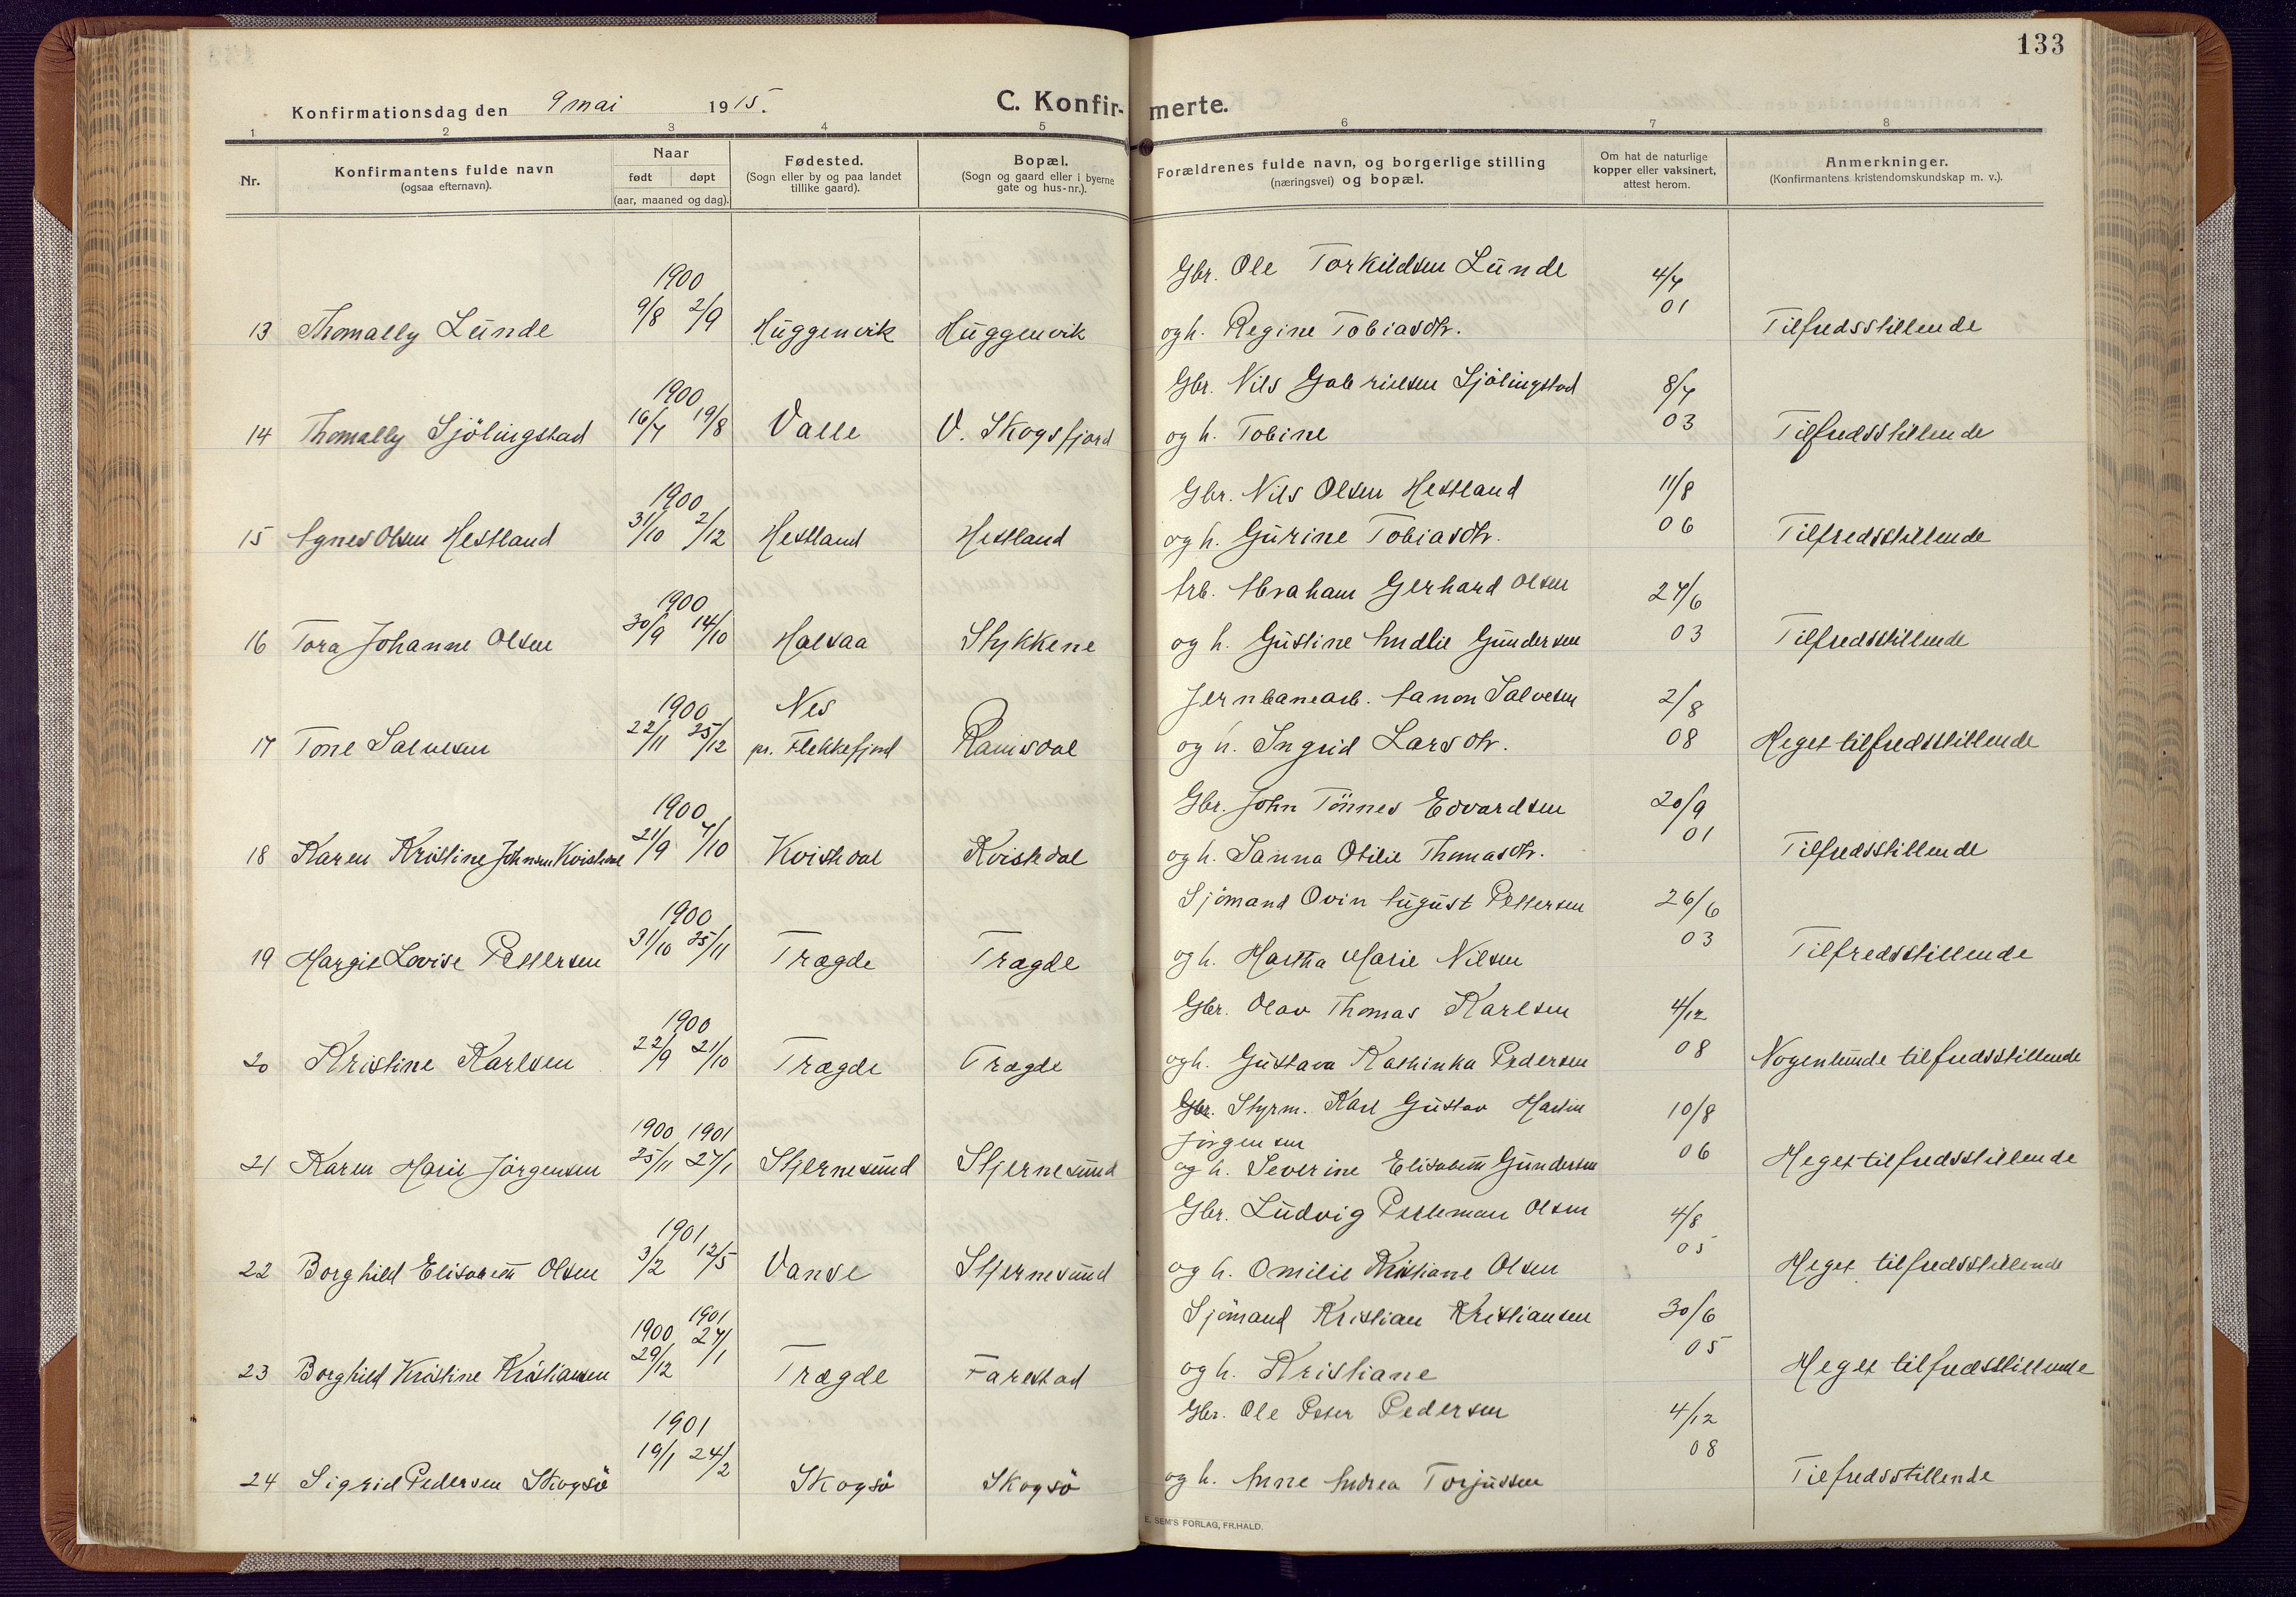 133
Konfirmationsdag den 9 mai 1915.
C. Konfir-merte.
1 2 3 4 5 6 7 8
Nr.
Konfirmantens fulde navn
(ogsaa efternavn).
Naar
født døpt
(aar, maaned og dag).
Fødested.
(Sogn eller by og paa landet
tillike gaard).
Bopæl.
(Sogn og gaard eller i byerne
gate og hus-nr.).
Forældrenes fulde navn, og borgerlige stilling
(næringsvei) og bopæl.
Om hat de naturlige
kopper eller vaksinert,
attest herom.
Anmerkninger.
(Konfirmantens kristendomskundskap m. v.).
1900 Gbr. Ole Torkildsen Lunde 4/7
13 Thomally Lunde 9/8 2/9 Huggenvik Huggenvik og h. Regine Tobiasdtr. 01 Tilfredsstillende
1900 Gbr. Nils Gabrielsen Sjölingstad 8/7
14 Thomally Sjölingstad 16/7 19/8 Valle V. Skogsfjord og h. Tobine 03 Tilfredsstillende
1900 Gbr. Nils Olsen Hestland 11/8
15 Agnes Olsen Hestland 31/10 2/12 Hestland Hestland og h. Gurine Tobiasdtr. 06 Tilfredsstillende
1900 Arb. Abraham Gerhard Olsen 27/6
16 Tora Johanne Olsen 30/9 14/10 Halsaa Stykkene og h. Gustine Amalie Gundersen 03 Tilfredsstillende
1900 Nes Jernbanearb. Aanon Salvesen 2/8
17 Tone Salvesen 22/11 25/12 pr. Flekkefjord Ramsdal og h. Ingrid Larsdtr. 08 Meget tilfredsstillende
1900 Gbr. John Tönnes Edvardsen 20/9
18 Karen Kristine Johnsen Kvisthdal 21/9 7/10 Kvisthdal Kvisthdal og h. Sanna Otilie Thomasdtr. 01 Tilfredsstillende
1900 Sjömand Ovin August Pettersen 26/6
19 Margit Lovise Pettersen 31/10 25/11 Trægde Trægde og h. Martha Marie Nilsen 03 Tilfredsstillende
1900 Gbr. Olav Thomas Karlsen 4/12
20 Kristine Karlsen 22/9 21/10 Trægde Trægde og h. Gustava Kathinka Pedersen 08 Nogenlunde tilfredsstillende
1900 1901 Gbr. Styrm. Karl Gustav Martin 10/8
Jörgensen
21 Karen Marie Jörgensen 25/11 27/1 Stjernesund Stjernesund og h. Severine Elisabeth Gundersen 06 Meget tilfredsstillende
1901 Gbr. Ludvig Petteman Olsen 4/8
22 Borghild Elisabeth Olsen 3/2 12/5 Vanse Stjernesund og h. Omilie Kristiane Olsen 05 Meget tilfredsstillende
1900 1901 Sjömand Kristian Kristiansen 30/6
23 Borghild Kristine Kristiansen 29/12 27/1 Trægde Farestad og h. Kristiane 05 Meget tilfredsstillende
1901 Gbr. Ole Peter Pedersen 4/12
24 Sigrid Pedersen Skogsö 19/1 24/2 Skogsö Skogsö og h. Anne Andrea Torjussen 08 Tilfredsstillende
E. SEM'S FORLAG, FR.HALD.